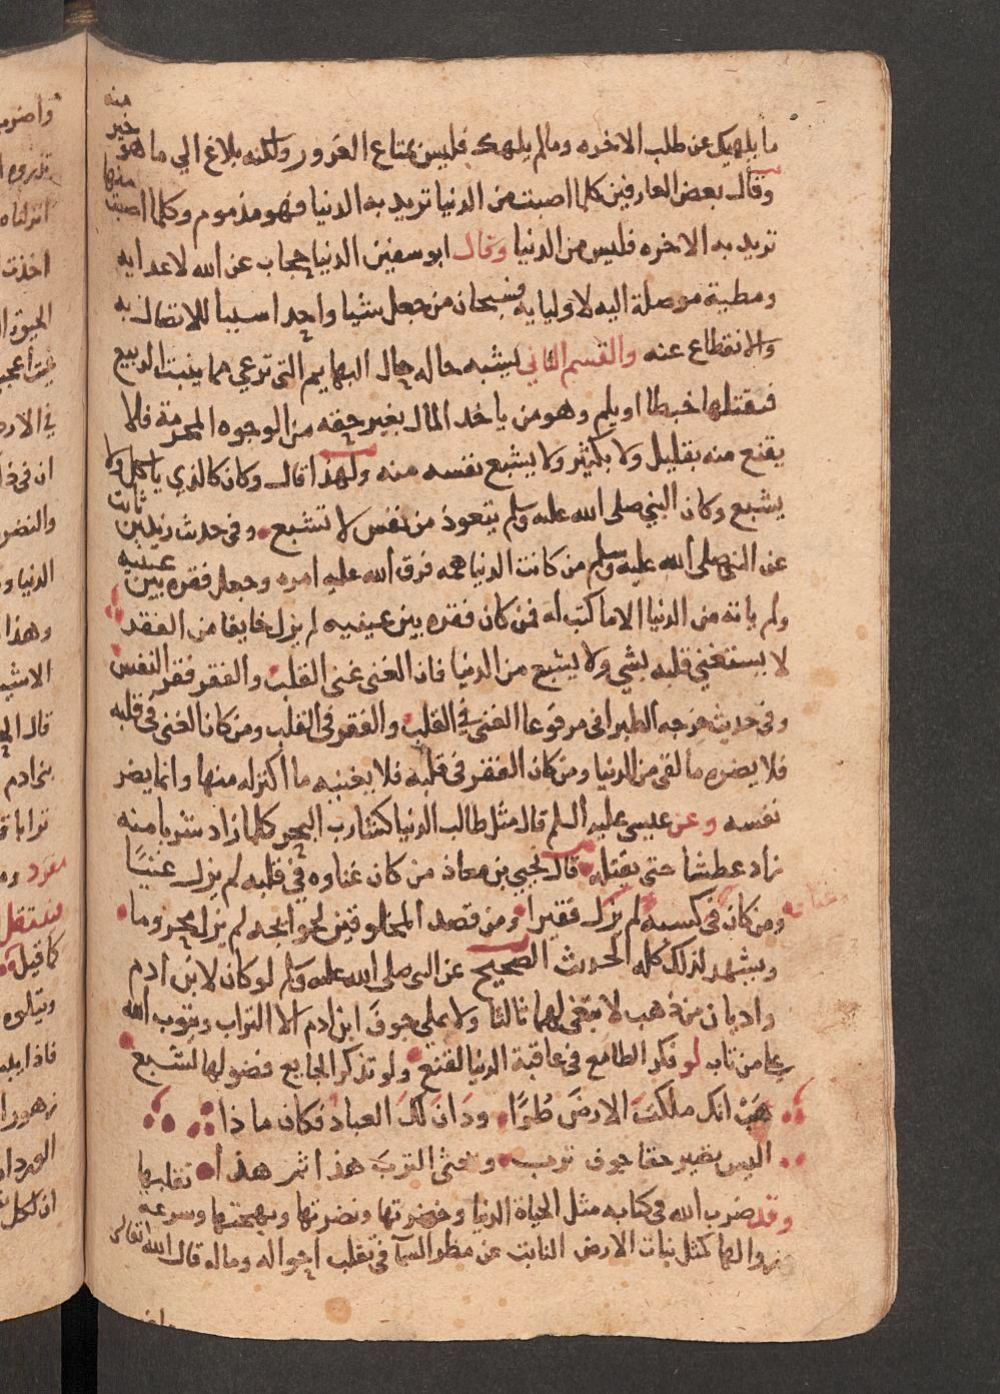 ما يلهيك عن طلب الاخره ومالم يلهك فليس بمتاع الغرور ولكنه بلاغ الي ما هو خير منه
وقال بعض العارفين كلما اصبت من الدنيا تريد به الدنيا فهو مذموم وكلما اصبت منها
تريد به الاخره فليس من الدنيا وقال ابو سفين الدنيا حجاب عن الله لاعدايه
ومطية موصلة اليه لاوليايه فسبحان من جعل شيا واحدا سببا للاتصال به
والانقطاع عنه والقسم الثاني يشبه حاله حال البهايم التي ترعي مما ينبت الربيع
فيقتلها خبطا او يلم وهو من ياخد المال بغير حقه من الوجوه المحرمة فلا
يقنع منه بقليل ولا بكثير ولا يشبع نفسه منه ولهذا قال وكان كالذي ياكل ولا
يشبع وكان النبي صلى الله عليه وسلم يتعوذ من نفس لا تشبع وفى حدث زيد بن ثابت
عن النبى صلى الله عليه وسلم من كانت الدنيا همه فرق الله عليه امره وجعل فقره بين عينيه
ولم ياته من الدنيا الا ما كتب له فمن كان فقره بين عينيه لم يزل خايفا من الفقد
لا يستغني قلبه بشي ولا يشبع من الدنيا فان الغنى غنى القلب والفقر فقر النفس
وفى حديث خرجه الطبرانى مرفوعا الغنى في القلب والفقر فى القلب ومن كان الغنى فى قلبه
فلا يضره ما لقى من الدنيا ومن كان الفقر فى قلبه فلا يغنيه ما اكثر له منها وانما يضر
نفسه وعن عيسى عليه السلم قال مثل طالب الدنيا كشارب البحر كلما زاد شربا منه
زاد عطشا حتى يقتله قال يحيي بن معاذ من كان غناوه في قلبه لم يزل غنيًا
ومن كان فى كسبه لم يزل فقيرا ومن قصد المخلوقين لحوايجه لم يزل محروما
ويشهد لذلك كله الحدث الصحيح عن النبى صلى الله عليه وسلم لو كان لابن ادم
واديان من ذهب لابتغى لهما ثالثا ولا يملي جوف ابن ادم الا التراب ويتوب الله
علي من تاب لو فكر الطامع فى عاقبة الدنيا لقنع ولو تذكر الجايع فضولها لشبع
هَبْ انك ملكت الارضَ طُرًا ودَانَ لكَ العبادُ فكان ماذا
اليس يصير حقا جوف ترب ويحثى التربَ هذا ثم هذا
وقد ضرب الله فى كتابه مثل الحياة الدنيا وخضرتها ونضرتها وبهجتها وسرعة تقلبها
وزوالها كمثل نبات الارض النابت عن مطر السما فى تقلب احواله وماله قال الله تعالى